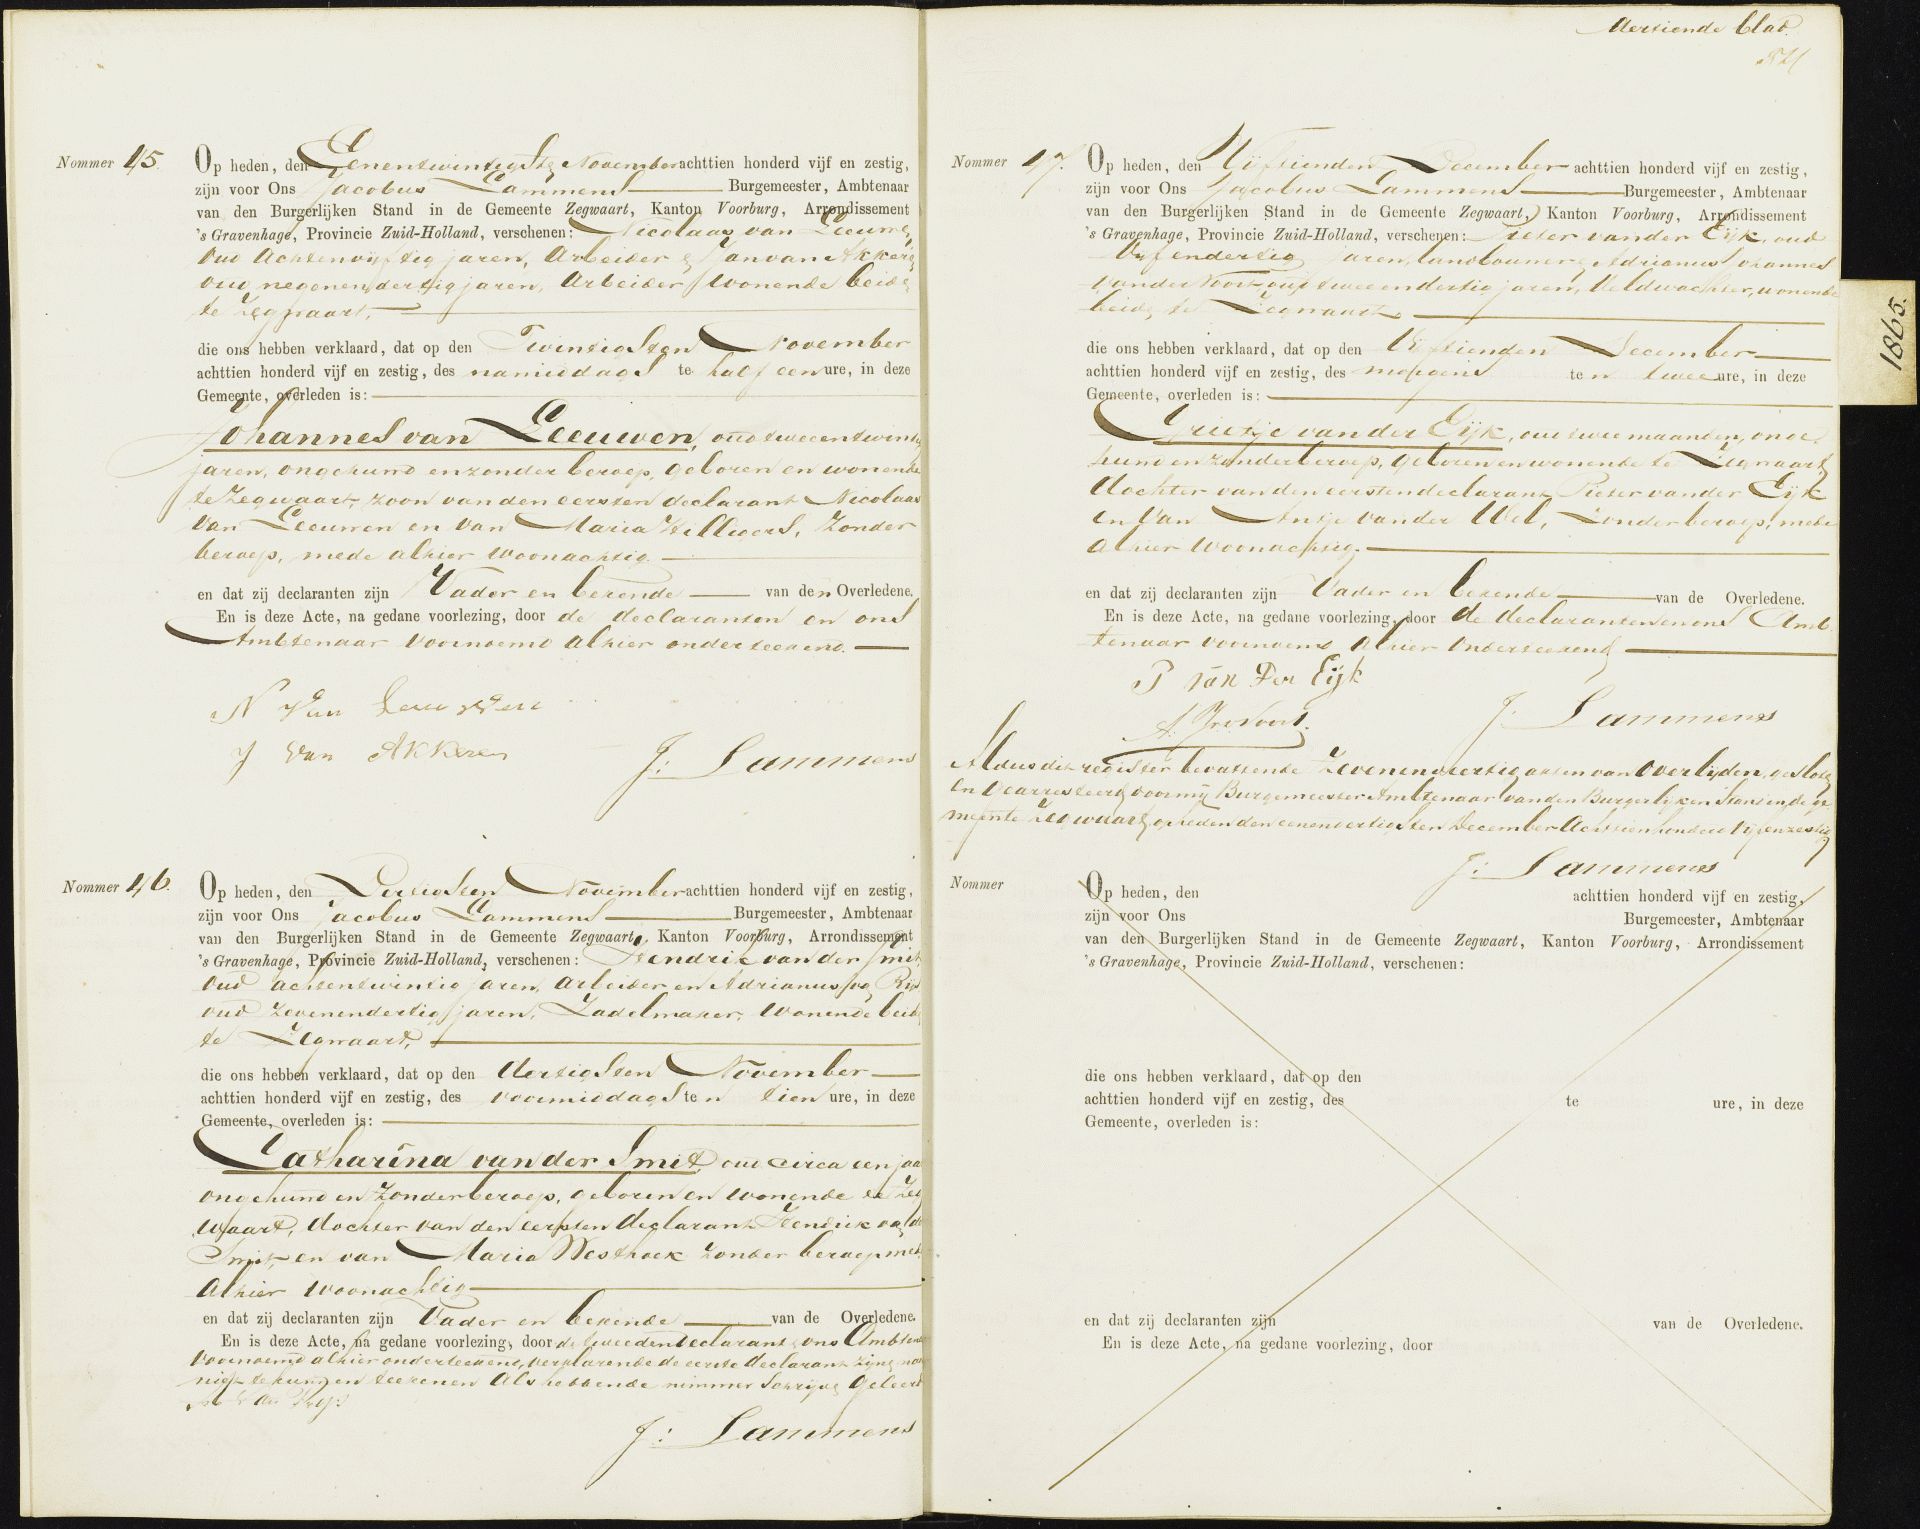 Nommer 45.
Op heden, den Eenentwintigste November achttien honderd vijf en zestig,
zijn voor Ons Jacobus Lammens Burgemeester, Ambtenaar
van den Burgerlijken Stand in de Gemeente Zegwaart, Kanton Voorburg, Arrondissement
's Gravenhage, Provincie Zuid-Holland, verschenen: Nicolaas van Leeuwen,
oud Achtenvijftig jaren, Arbeider & Jan van Akkeren
oud negenendertig jaren, Arbeider, wonende beide
te Zegwaart,
die ons hebben verklaard, dat op den Twintigsten November
achttien honderd vijf en zestig, des namiddags te half een ure, in deze
Gemeente, overleden is:
Johannes van Leeuwen, oud tweeentwintig
jaren, ongehuwd en zonder beroep, geboren en wonende
te Zegwaart, zoon van den eersten declarant Nicolaas
van Leeuwen en van Maria Hillegers, zonder
beroep, mede alhier woonachtig.
en dat zij declaranten zijn Vader en bekende van den Overledene.
En is deze Acte, na gedane voorlezing, door de declaranten en ons
Ambtenaar voornoemd alhier onderteekend.
N Van Leeuwen
J Van Akkeren
J: Lammens
Nommer 46.
Op heden, den Dertigsten November achttien honderd vijf en zestig,
zijn voor Ons Jacobus Lammens Burgemeester, Ambtenaar
van den Burgerlijken Stand in de Gemeente Zegwaart, Kanton Voorburg, Arrondissement
's Gravenhage, Provincie Zuid-Holland, verschenen: Hendrik van der Smit,
oud achtentwintig jaren, Arbeider en Adrianus
oud zevenendertig jaren, Zadelmaker, wonende beide
te Zegwaart,
die ons hebben verklaard, dat op den dertigsten November
achttien honderd vijf en zestig, des voormiddags te n tien ure, in deze
Gemeente, overleden is:
Catharina van der Smit, oud circa een jaar
ongehuwd en zonder beroep, geboren en wonende te Zeg
waart, dochter van den eersten declarant Hendrik van der
Smit, en van Maria Westhoek zonder beroep mede
alhier woonachtig
en dat zij declaranten zijn Vader en bekende van de Overledene.
En is deze Acte, na gedane voorlezing, door de tweeden declarant & ons Ambtenaar
voornoemd alhier onderteekend, verklarende de eerste declarant zijn naam
niet te kunnen teekenen als hebbende nimmer schrijven geleerd
J: Lammens
Veertiende blad.
Nommer 47.
Op heden, den Vijftienden December achttien honderd vijf en zestig,
zijn voor Ons Jacobus Lammens Burgemeester, Ambtenaar
van den Burgerlijken Stand in de Gemeente Zegwaart, Kanton Voorburg, Arrondissement
's Gravenhage, Provincie Zuid-Holland, verschenen: Pieter van der Eijk, oud
Vijfendertig jaren, landbouwer & Adrianus Johannes
van der Voort oud tweeendertig jaren, Veldwachter, wonende
beide te Zegwaart
die ons hebben verklaard, dat op den Vijftienden December
achttien honderd vijf en zestig, des morgens te n twee ure, in deze
Gemeente, overleden is:
Grietje van der Eijk, oud twee maanden, onge
huwd en zonder beroep, geboren en wonende te Zegwaart
dochter van den eersten declarant Pieter van der Eijk
en van Antje van der Wel, zonder beroep, mede
alhier woonachtig.
en dat zij declaranten zijn Vader en bekende van de Overledene.
En is deze Acte, na gedane voorlezing, door de declaranten en ons Amb
tenaar voornoemd alhier onderteekend
P van Der Eijk
J: Lammens
Aldus dit register bevattende Zevenenveertig akten van Overlijden, gesloten
en gearresteerd door mij Burgemeester Ambtenaar van den Burgerlijken Stand in de ge
meente Zegwaart, op heden den eenendertigsten December Achttienhonderd Vijfenzestig
J: Lammens
Nommer
Op heden, den achttien honderd vijf en zestig,
zijn voor Ons Burgemeester, Ambtenaar
van den Burgerlijken Stand in de Gemeente Zegwaart, Kanton Voorburg, Arrondissement
's Gravenhage, Provincie Zuid-Holland, verschenen:
die ons hebben verklaard, dat op den
achttien honderd vijf en zestig, des te ure, in deze
Gemeente, overleden is:
en dat zij declaranten zijn van de Overledene.
En is deze Acte, na gedane voorlezing, door
1865.